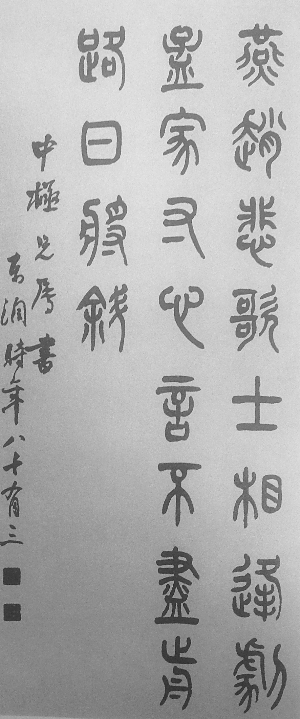 燕趙悲歌士相逢劇
孟家寸心言不盡前
路日將斜
中極兄屬書
時年八十有三